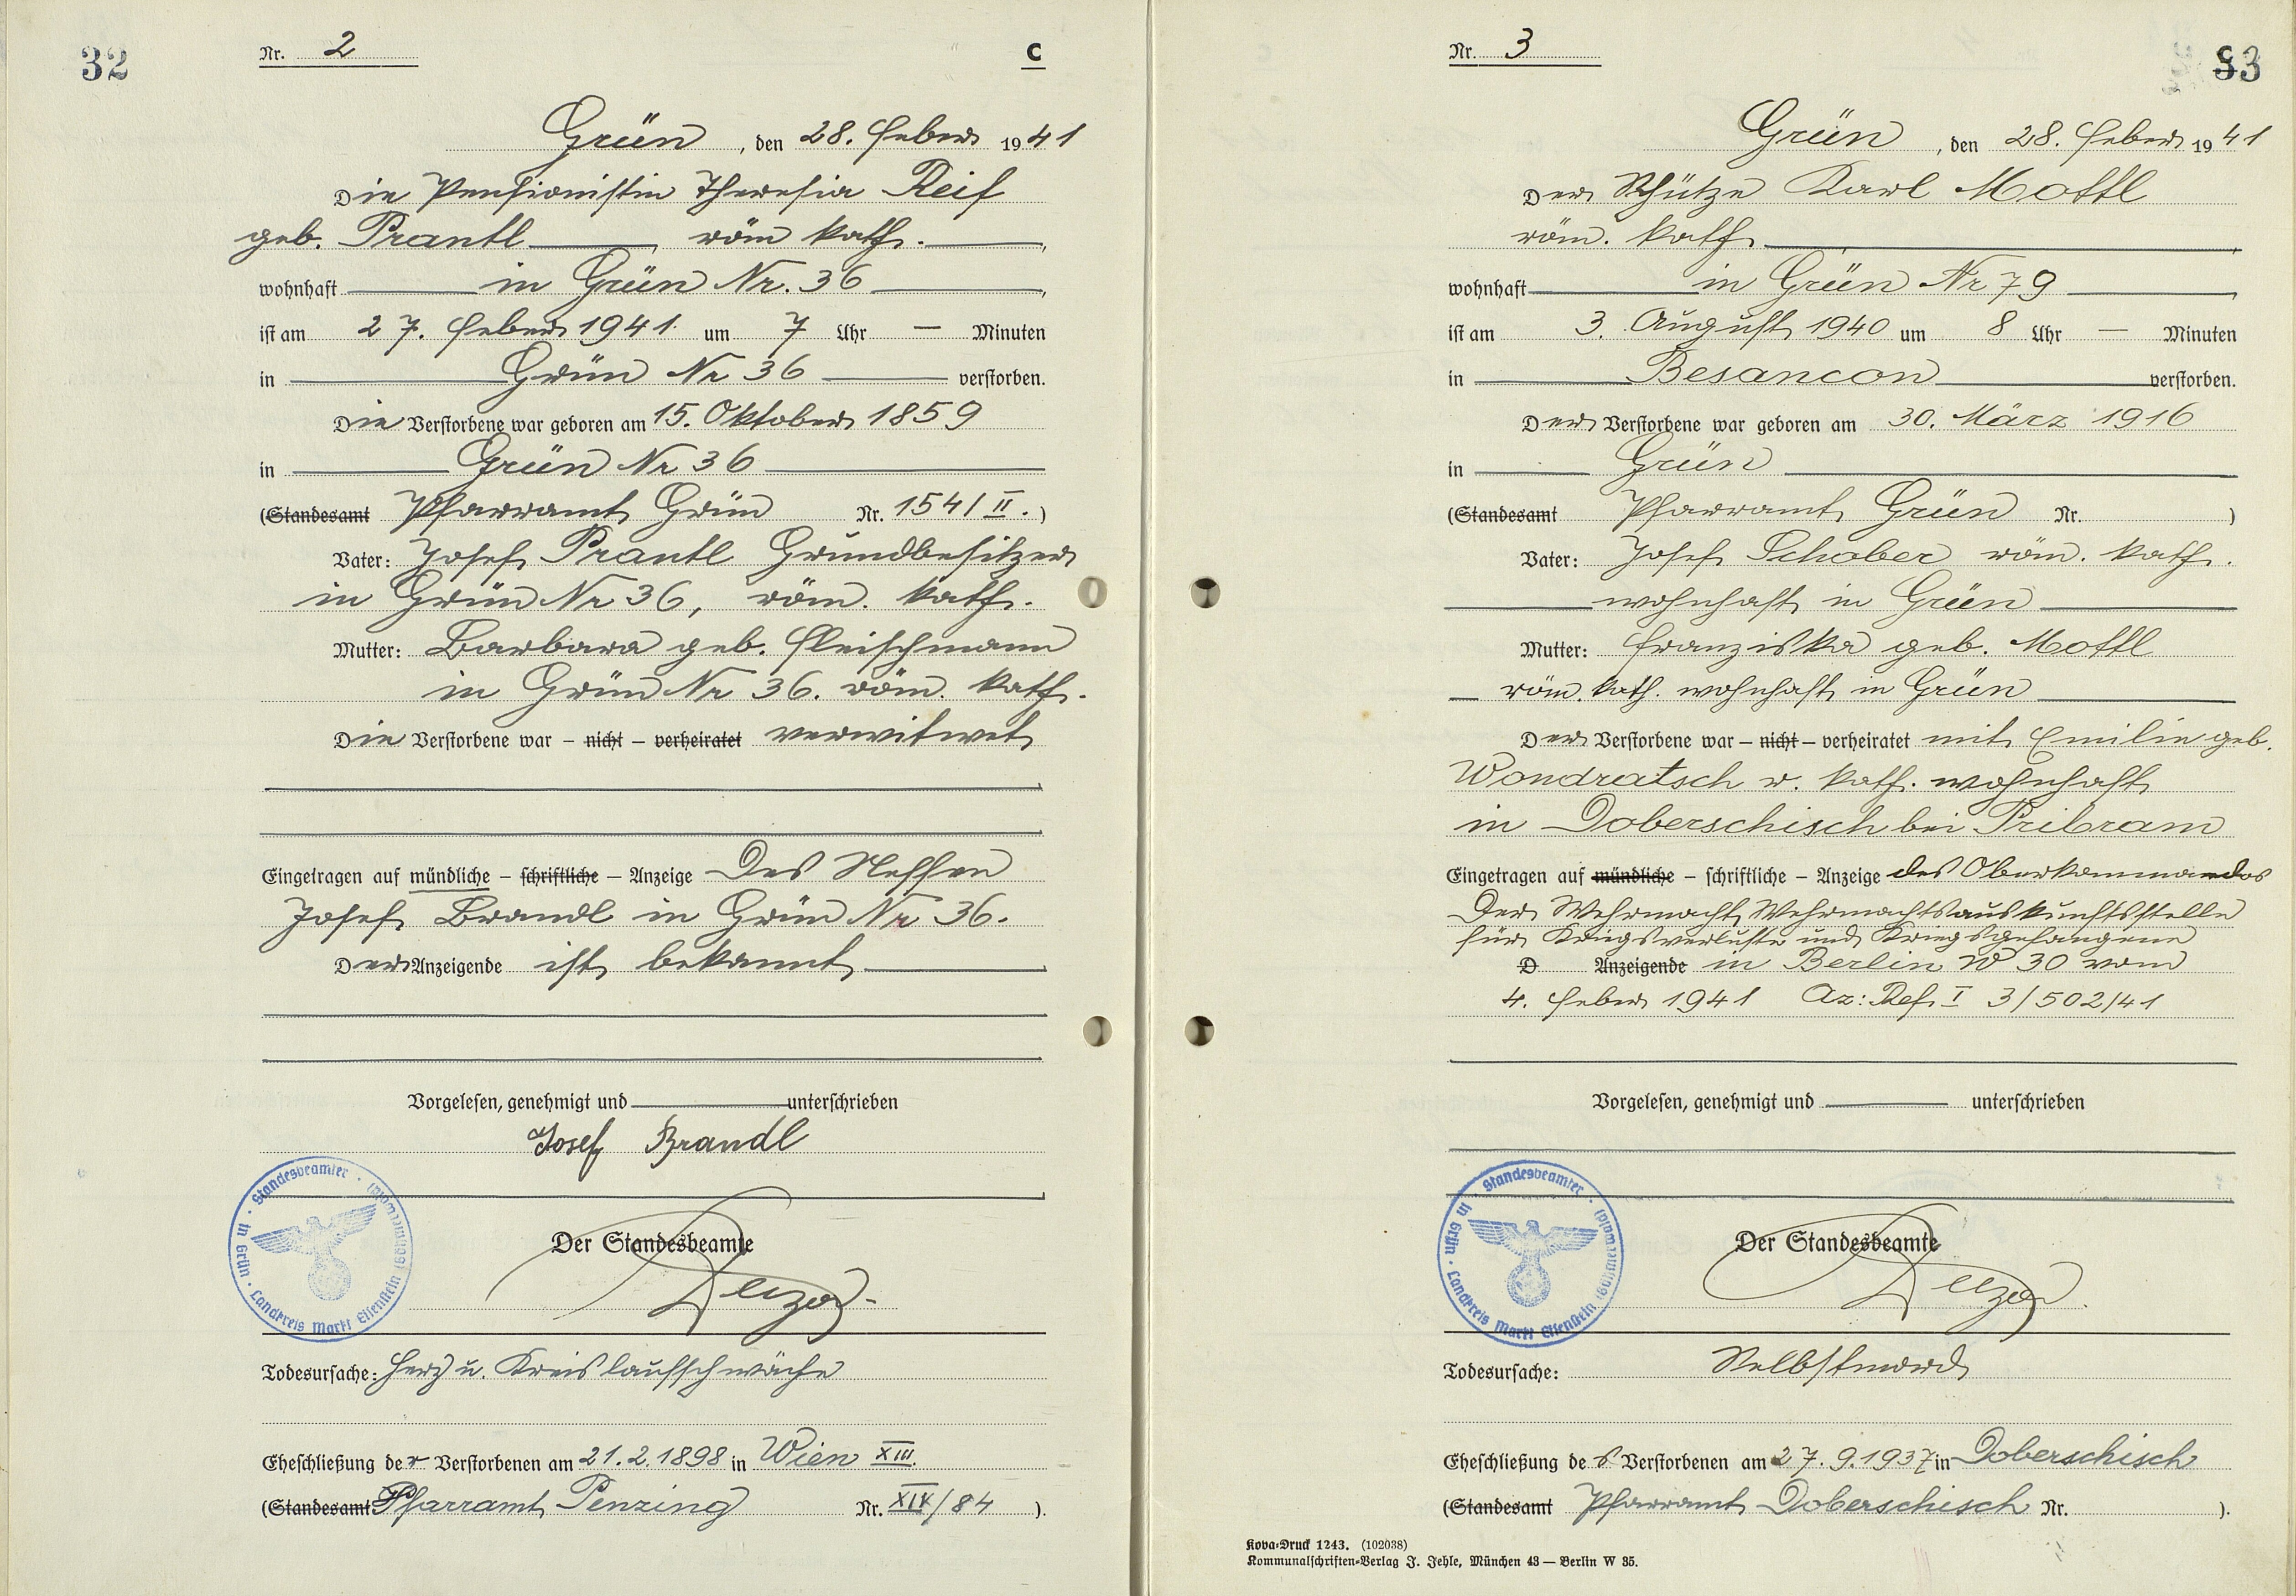 32
Nr. 2
C
Grün, den 28. Feber 1941
Die Pensionistin Theresia Reif
geb. Prantl röm kath.
wohnhaft in Grün Nr. 36
ist am 27. Feber 1941 um 7 Uhr — Minuten
in Grün Nr 36 verstorben.
Die Verstorbene war geboren am 15. Oktober 1859
in Grün Nr 36
(Standesamt Pfarramt Grün Nr. 154/II.)
Vater: Josef Prantl Grundbesitzer
in Grün Nr 36, röm. kath.
Mutter: Barbara geb. Fleischmann
in Grün Nr 36. röm. kath.
Die Verstorbene war – nicht – verheiratet verwitwet
Eingetragen auf mündliche – schriftliche – Anzeige Des Neffen
Josef Brandl in Grün Nr 36.
Der Anzeigende ist bekannt
Vorgelesen, genehmigt und unterschrieben
Josef Brandl
Standesbeamter in Grün · Landkreis Markt Eisenstein (Böhmerwald)
Der Standesbeamte
Todesursache: Herz u. Kreislaufschwäche
Eheschließung der Verstorbenen am 21.2.1898 in Wien XIII.
(Standesamt Pfarramt Penzing Nr. XIV/84).
Nr. 3
33
Grün, den 28. Feber 1941
Der Schütze Karl Mottl
röm. kath
wohnhaft in Grün Nr 79
ist am 3. August 1940 um 8 Uhr — Minuten
in Besancon verstorben.
Der Verstorbene war geboren am 30. März 1916
in Grün
(Standesamt Pfarramt Grün Nr. )
Vater: Josef Schober röm. kath.
wohnhaft in Grün
Mutter: Franziska geb. Mottl
röm. kath. wohnhaft in Grün
Der Verstorbene war – nicht – verheiratet mit Emilie geb.
Wondratsch r. kath. wohnhaft
in Doberschisch bei Pribram
Eingetragen auf mündliche – schriftliche – Anzeige des Oberkommandos
Der Wehrmacht Wehrmachtsauskunftsstelle
für Kriegsverluste und Kriegsgefangene
D Anzeigende in Berlin W 30 vom
4. Feber 1941 Az: Ref. I 3/502/41
Vorgelesen, genehmigt und unterschrieben
Standesbeamter in Grün · Landkreis Markt Eisenstein (Böhmerwald)
Der Standesbeamte
Todesursache: Selbstmord
Eheschließung des Verstorbenen am 27.9.1937 in Doberschisch
(Standesamt Pfarramt Doberschisch Nr. ).
Kova-Druck 1243. (102038)
Kommunalschriften-Verlag J. Jehle, München 43 — Berlin W 35.